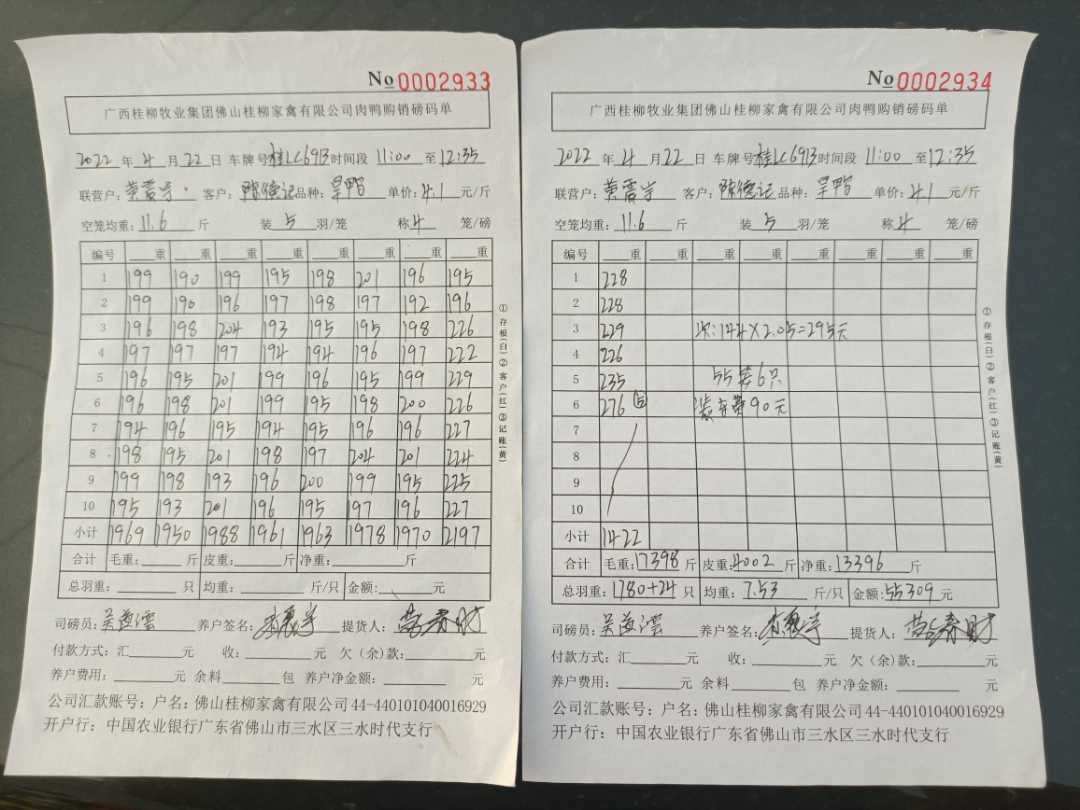 No 0002933
广西桂柳牧业集团佛山桂柳家禽有限公司肉鸭购销磅码单
2022 年 4 月 22 日 车牌号 桂LC6913 时间段 11:00 至 12:35
联营户: 客户: 陈德记 品种: 旱鸭 单价: 4.1 元/斤
空笼均重: 11.6 斤 装 5 羽/笼 称 4 笼/磅
编号 重 重 重 重 重 重 重 重
1 199 190 199 195 198 201 196 195
2 199 190 196 197 198 197 192 196
3 196 198 204 193 195 195 198 226
4 197 197 197 194 194 196 197 222
5 196 195 201 199 196 195 199 229
6 196 198 201 199 195 198 200 226
7 194 196 195 194 195 196 196 227
8 198 195 201 198 197 204 201 224
9 199 198 193 196 200 199 195 225
10 195 193 201 196 195 197 196 227
小计 1969 1950 1988 1961 1963 1978 1970 2197
合计 毛重: 斤 皮重: 斤 净重: 斤
总羽重: 只 均重: 斤/只 金额: 元
司磅员: 养户签名: 提货人:
付款方式: 汇 元 收: 元 欠(余)款: 元
养户费用: 元 余料 包 养户净金额: 元
公司汇款账号: 户名: 佛山桂柳家禽有限公司44-440101040016929
开户行: 中国农业银行广东省佛山市三水区三水时代支行
①存根(白)②客户(红)③记账(黄)
No 0002934
广西桂柳牧业集团佛山桂柳家禽有限公司肉鸭购销磅码单
2022 年 4 月 22 日 车牌号 桂LC6913 时间段 11:00 至 12:35
联营户: 客户: 陈德记 品种: 旱鸭 单价: 4.1 元/斤
空笼均重: 11.6 斤 装 5 羽/笼 称 4 笼/磅
编号 重 重 重 重 重 重 重 重
1 228
2 228
3 229 次:144×2.05=295元
4 226
5 235 55装6只
6 276 装车费90元
7
8
9
10
小计 1422
合计 毛重: 17398 斤 皮重: 4002 斤 净重: 13396 斤
总羽重: 1780+24 只 均重: 7.53 斤/只 金额: 55309 元
司磅员: 养户签名: 提货人:
付款方式: 汇 元 收: 元 欠(余)款: 元
养户费用: 元 余料 包 养户净金额: 元
公司汇款账号: 户名: 佛山桂柳家禽有限公司44-440101040016929
开户行: 中国农业银行广东省佛山市三水区三水时代支行
①存根(白)②客户(红)③记账(黄)